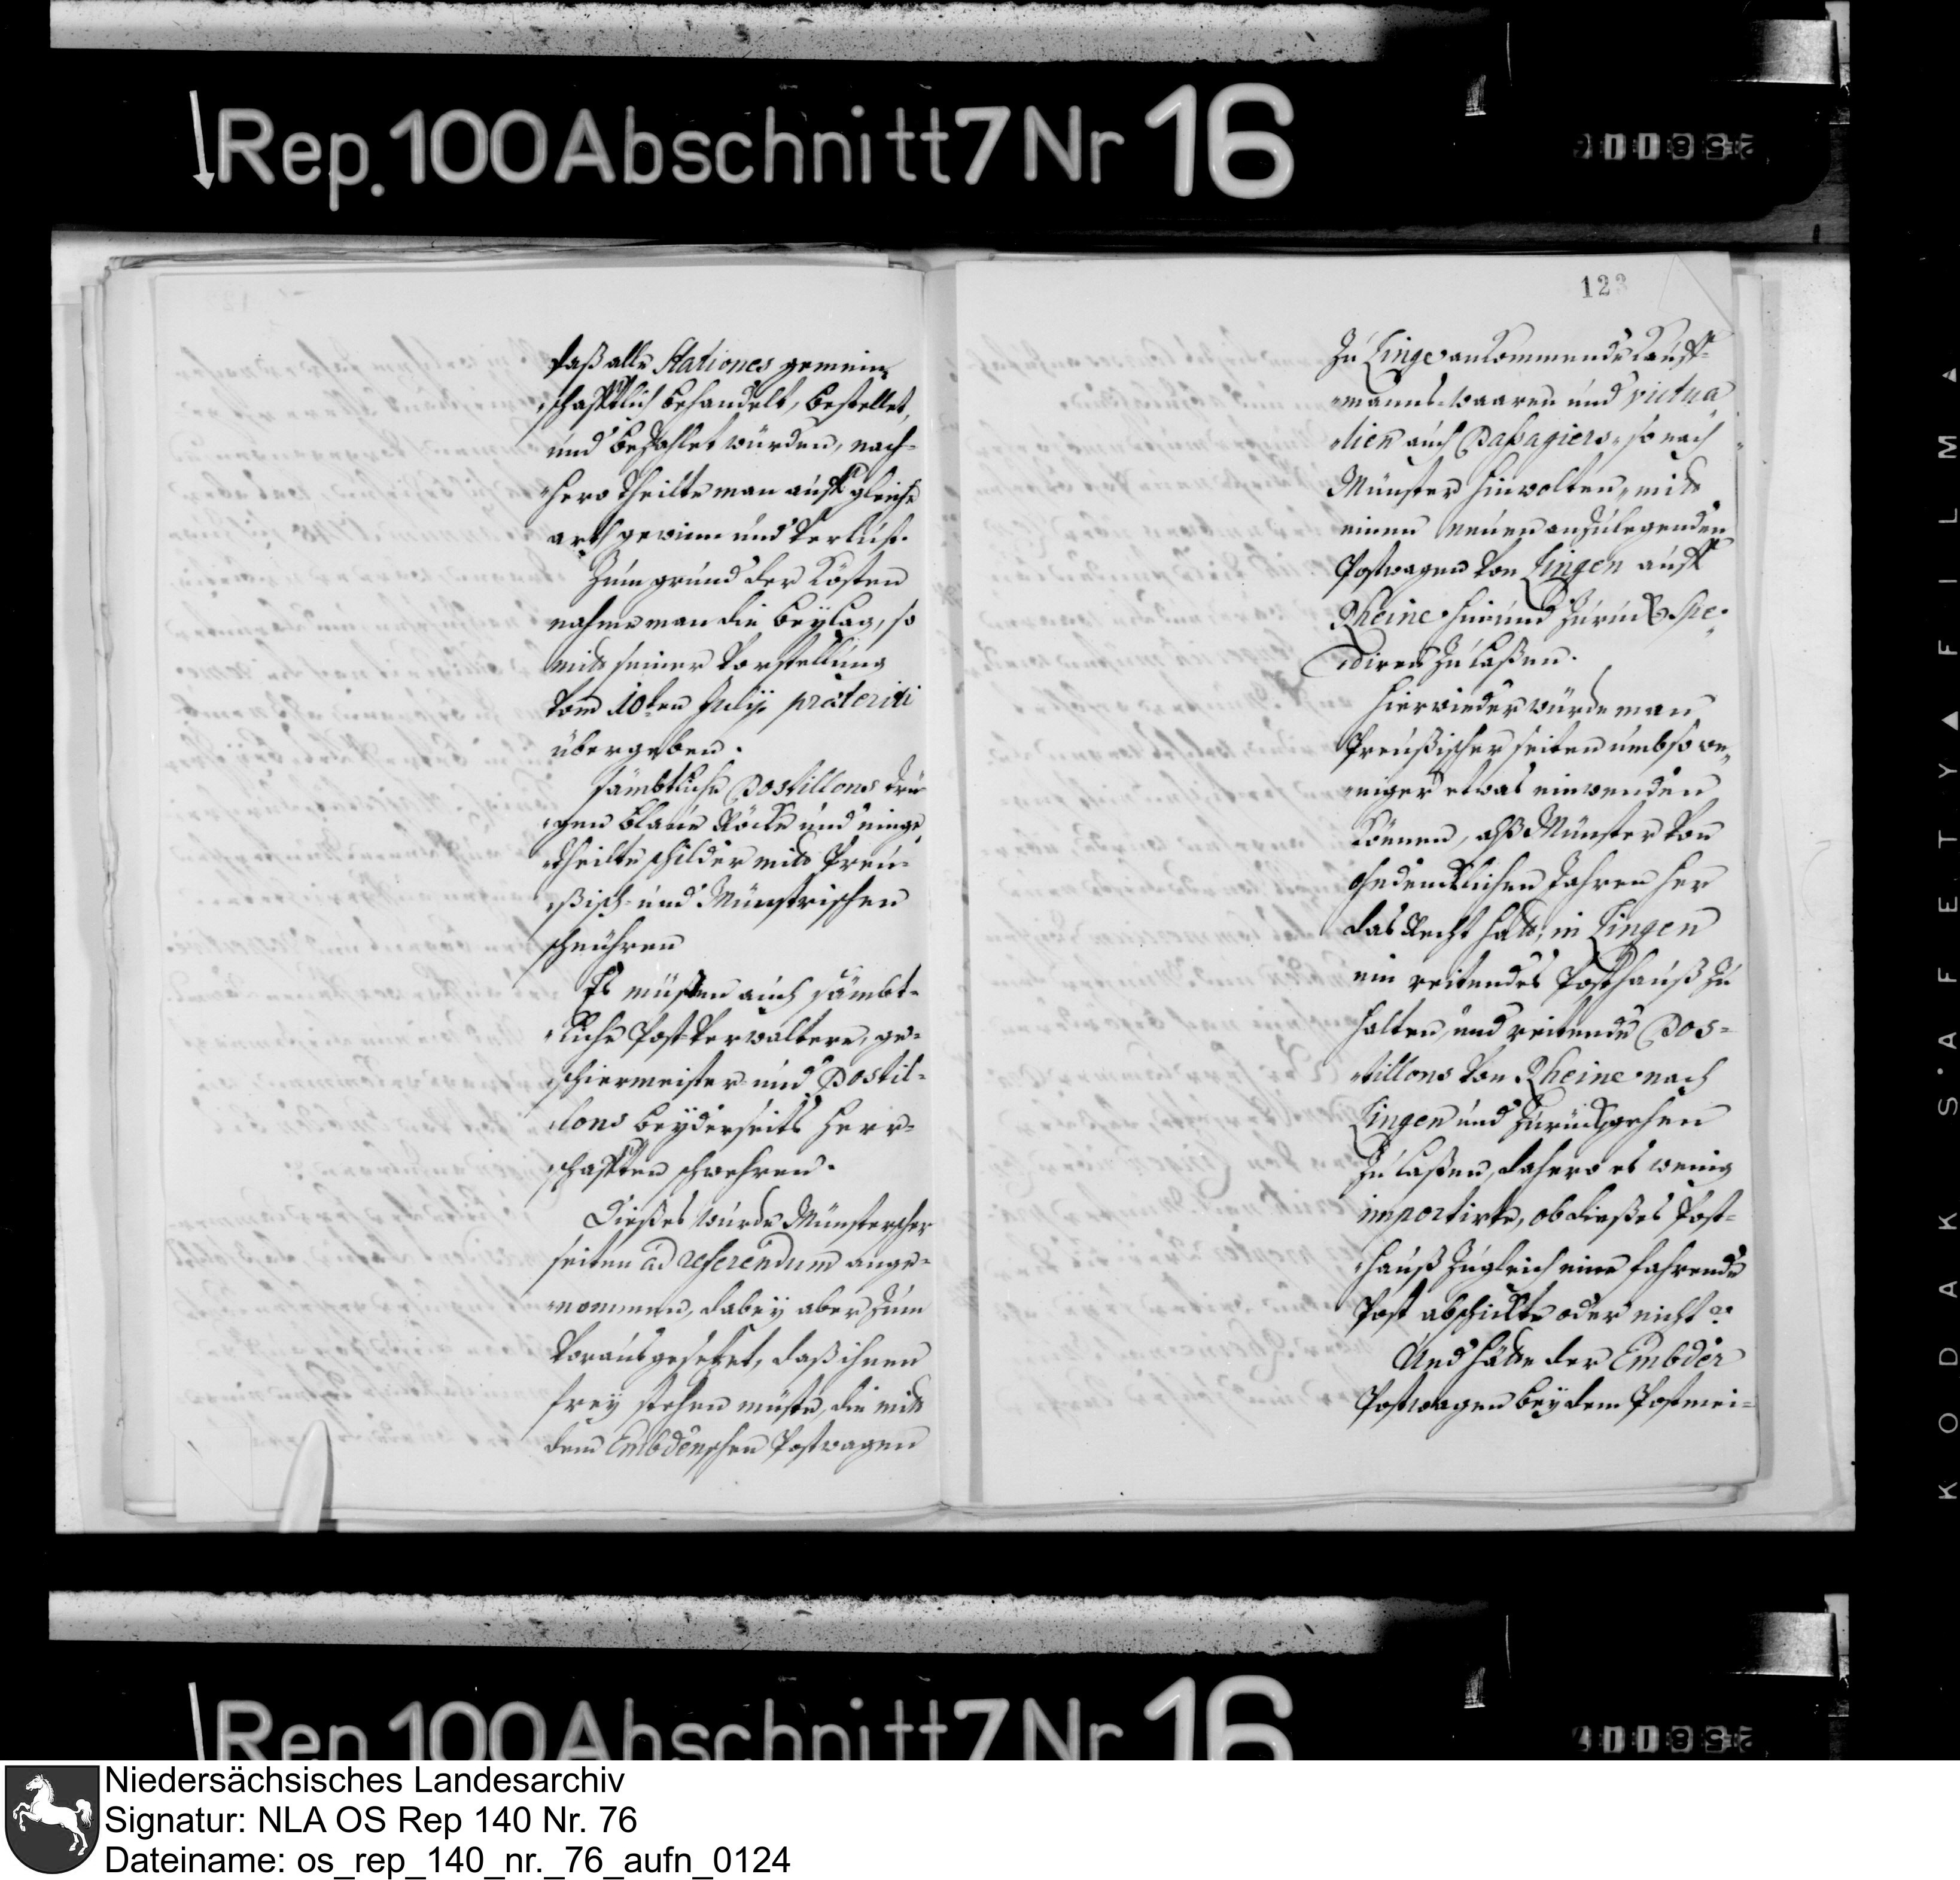 Rep. 100 Abschnitt 7 Nr 16
daß alle Stationes gemein,
schafftlich behandelt, bestellet,
und bezahlet würden, nach-
hero theilte man auff gleiche
arth gewinn und Verlust.
Zum grund der Kösten
nahme man die beylag, so
mit seiner Vorstellung
vom 10ten Julÿ præteriti
übergeben.
sämbtliche Postillons trü
gen blaue Röcke und einge
theilte schilder mit Preu-
ßisch- und Münstrischen
schnühren
Es müßten auch sämbt-
liche Post Verwaltere, ge-
schiermeister und Postil-
lons beyderseits Herr-
schafften schwehren.
Dießes wurde Münstercher
seiten ad referendum ange-
nommen, dabey aber zum
Voraus gesetzet, daß ihnen
frey stehen müste, die mit
dem Embdenschen Postwagen
123
zu Linge ankommende Kauff-
manns waaren und victua
lien auch Passagiers, so nach
Münster hinwolten, mit
einen neuen anzulegenden
Postwagen von Lingen auff
Rheine hin und zurück spe-
diren zu laßen.
Hierwieder würde man
Preußischer seiten umb so we,
niger etwas einwenden
können, alß Münster von
ohndencklichen Jahren her
das Recht hatt, in Lingen
ein reitendes Posthauß zu
halten, und reitende Pos-
tillons von Rheine nach
Lingen und zurückgehen
zu laßen, dahero es wenig
importirte, ob dießes Post-
hauß zugleich eine fahrende
Post abschickte oder nicht
Und hätte der Embder
Postwagen bey dem Postmei-
KODAK S·AFETY▲FILM▲
Rep. 100 Abschnitt 7 Nr 16
Niedersächsisches Landesarchiv
Signatur: NLA OS Rep 140 Nr. 76
Dateiname: os_rep_140_nr._76_aufn_0124